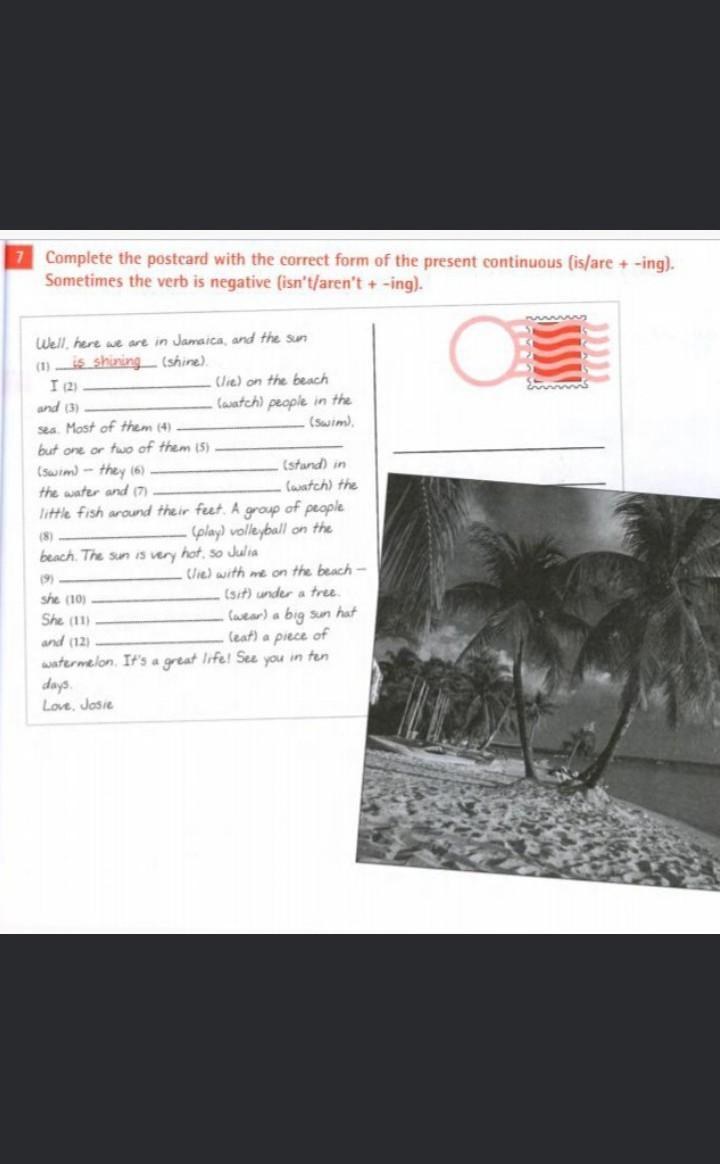 7 Complete the postcard with the correct form of the present continuous (is/are + -ing).
Sometimes the verb is negative (isn't/aren't + -ing).
Well, here we are in Jamaica, and the sun
(1) is shining (shine).
I (2) ____________ (lie) on the beach
and (3) ____________ (watch) people in the
sea. Most of them (4) ____________ (swim),
but one or two of them (5) ____________
(swim) – they (6) ____________ (stand) in
the water and (7) ____________ (watch) the
little fish around their feet. A group of people
(8) ____________ (play) volleyball on the
beach. The sun is very hot, so Julia
(9) ____________ (lie) with me on the beach –
she (10) ____________ (sit) under a tree.
She (11) ____________ (wear) a big sun hat
and (12) ____________ (eat) a piece of
watermelon. It's a great life! See you in ten
days.
Love, Josie